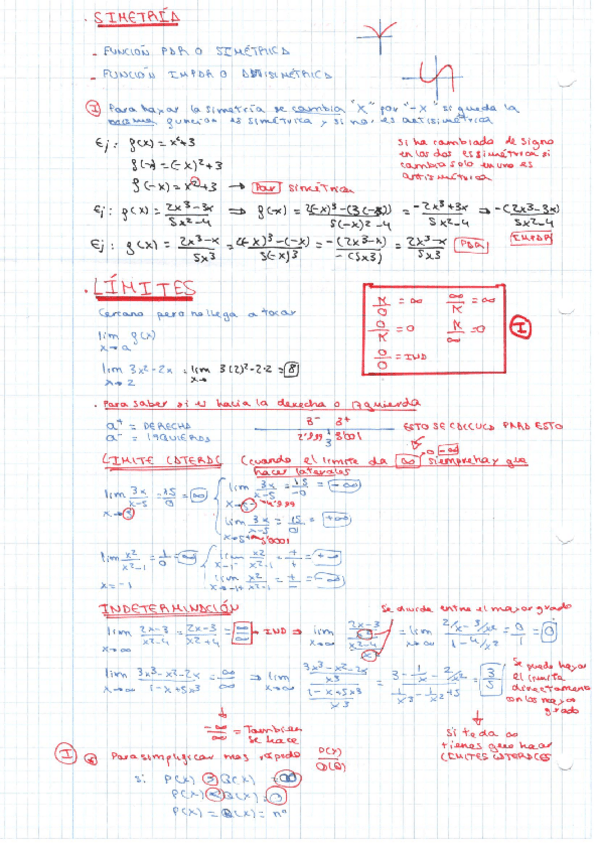 . SIMETRÍA
- FUNCIÓN PAR O SIMÉTRICA
- FUNCIÓN IMPAR O ANTISIMÉTRICA
I Para hayar la simetría se cambia "x" por "-x" si queda la
misma función es simétrica y si no, es antisimétrica
Ej: f(x) = x²+3
f(-x) = (-x)²+3
f(-x) = x²+3 → Par simétrica
Si ha cambiado de signo
en los dos es simétrica si
cambia solo en uno es
antisimétrica
Ej: f(x) = 2x³-3x / 5x²-4 ⇒ f(-x) = 2(-x)³-(3(-x)) / 5(-x)²-4 = -2x³+3x / 5x²-4 ⇒ -(2x³-3x) / 5x²-4
IMPAR
Ej: f(x) = 2x³-x / 5x³ = 2(-x)³-(-x) / 5(-x)³ = -(2x³-x) / -(5x³) = 2x³-x / 5x³ PAR
. LÍMITES
Cercano pero no llega a tocar
lim f(x)
x→a
lim 3x²-2x = lim 3(2)²-2·2 = 8
x→2 x→
K/0 = ∞ ∞/K = ∞
0/K = 0 K/∞ = 0
0/0 = IND
I
. Para saber si es hacia la derecha o izquierda
a⁺ = DERECHA
a⁻ = IZQUIERDA
3⁻ 3⁺
2'999 3'001
3
ESTO SE CALCULA PARA ESTO
LÍMITE LATERAL (cuando el límite da ∞ o -∞ siempre hay que
hacer laterales
lim 3x / x-5 = 15/0 = ∞
x→5
lim 3x / x-5 = 15/-0 = -∞
x→5⁻ 4'999
lim 3x / x-5 = 15/0 = +∞
x→5⁺ 5'0001
lim x² / x²-1 = 1/0 = ∞
x=-1
lim x² / x²-1 = +/+ = +∞
x→-1⁻
lim x² / x²-1 = +/- = -∞
x→-1⁺
INDETERMINACIÓN
Se divide entre el mayor grado
lim 2x-3 / x²-4 = 2x-3 / x²+4 = ∞/∞ → IND ⇒ lim 2x-3 / x² / x²-4 / x² = lim 2/x-3/x² / 1-4/x² = 0/1 = 0
x→∞ x→∞ x→∞
lim 3x³-x²-2x / 1-x+5x³ = ∞/∞ ⇒ lim 3x³-x²-2x / x³ / 1-x+5x³ / x³ = 3-1/x-2/x² / 1/x³-1/x²+5 = 3/5
x→∞ x→∞
Se puede hayar
el límite
directamente
con los mayor
grado
-∞/∞ = También
se hace
Si te da ∞
tienes que hacar
LÍMITES LATERALES
I Para simplificar más rápido P(x)/Q(x)
si: P(x) > Q(x) = ∞
P(x) < Q(x) = 0
P(x) = Q(x) = nº